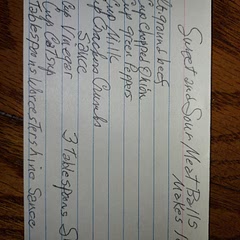 Sweet and Sour Meat Balls
Makes
ground beef
cup chopped Onion
green Peppers
cup Milk
cup Cracker Crumbs
Sauce
Cup Vinegar 3 Tablespoons S
Cup Catsup
Tablespoons Worcestershire Sauce